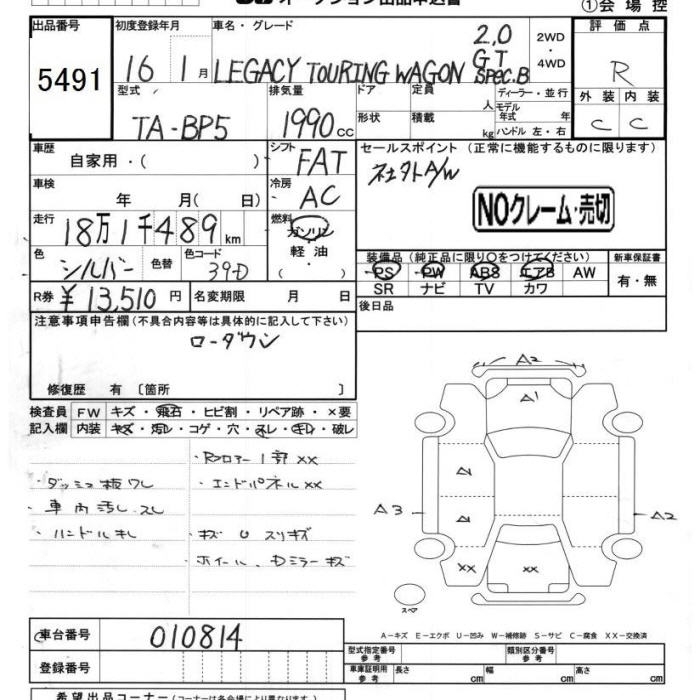 オークション出品申込書
①会場控
出品番号 初度登録年月 車名・グレード 評価点
5491
16 1月 LEGACY TOURING WAGON 2,0 GT SPEC.B
2WD・4WD
R
型式 排気量 ドア 定員 ディーラー・並行 外装 内装
人 モデル年式 年
TA-BP5 1990cc 形状 積載 kg ハンドル 左・右 C C
車歴 シフト セールスポイント (正常に機能するものに限ります)
自家用・( ) FAT
社外A/W
車検 冷房
年 月( 日) AC
NOクレーム・売切
走行 燃料
18万1千489km ガソリン
軽油
・( )
色 色替 色コード 装備品 (純正品に限り○をつけてください) 新車保証書
シルバー 39D PS PW ABS エアB AW 有・無
SR ナビ TV カワ
R券 ¥13,510円 名変期限 月 日 後日品
注意事項申告欄 (不具合内容等は具体的に記入して下さい)
ローダウン
修復歴 有 〔箇所 〕
検査員 FW キズ・飛石・ヒビ割・リペア跡・×要
記入欄 内装 キズ・汚レ・コゲ・穴・スレ・キレ・破レ
・Rフロアー1部XX
・ダッシュ板ワレ ・エンドパネルXX
・車内汚レスレ
・ハンドルキレ ・キズUスリキズ
・ホイール、Dミラーキズ
A2
A1
A1
A3 A1 A2
XX XX
スペア
A−キズ E−エクボ U−凹み W−補修跡 S−サビ C−腐食 XX−交換済
車台番号 010814
型式指定番号 参考 類別区分番号 参考
登録番号 車庫証明用 参考 長さ cm 幅 cm 高さ cm
希望出品コーナー